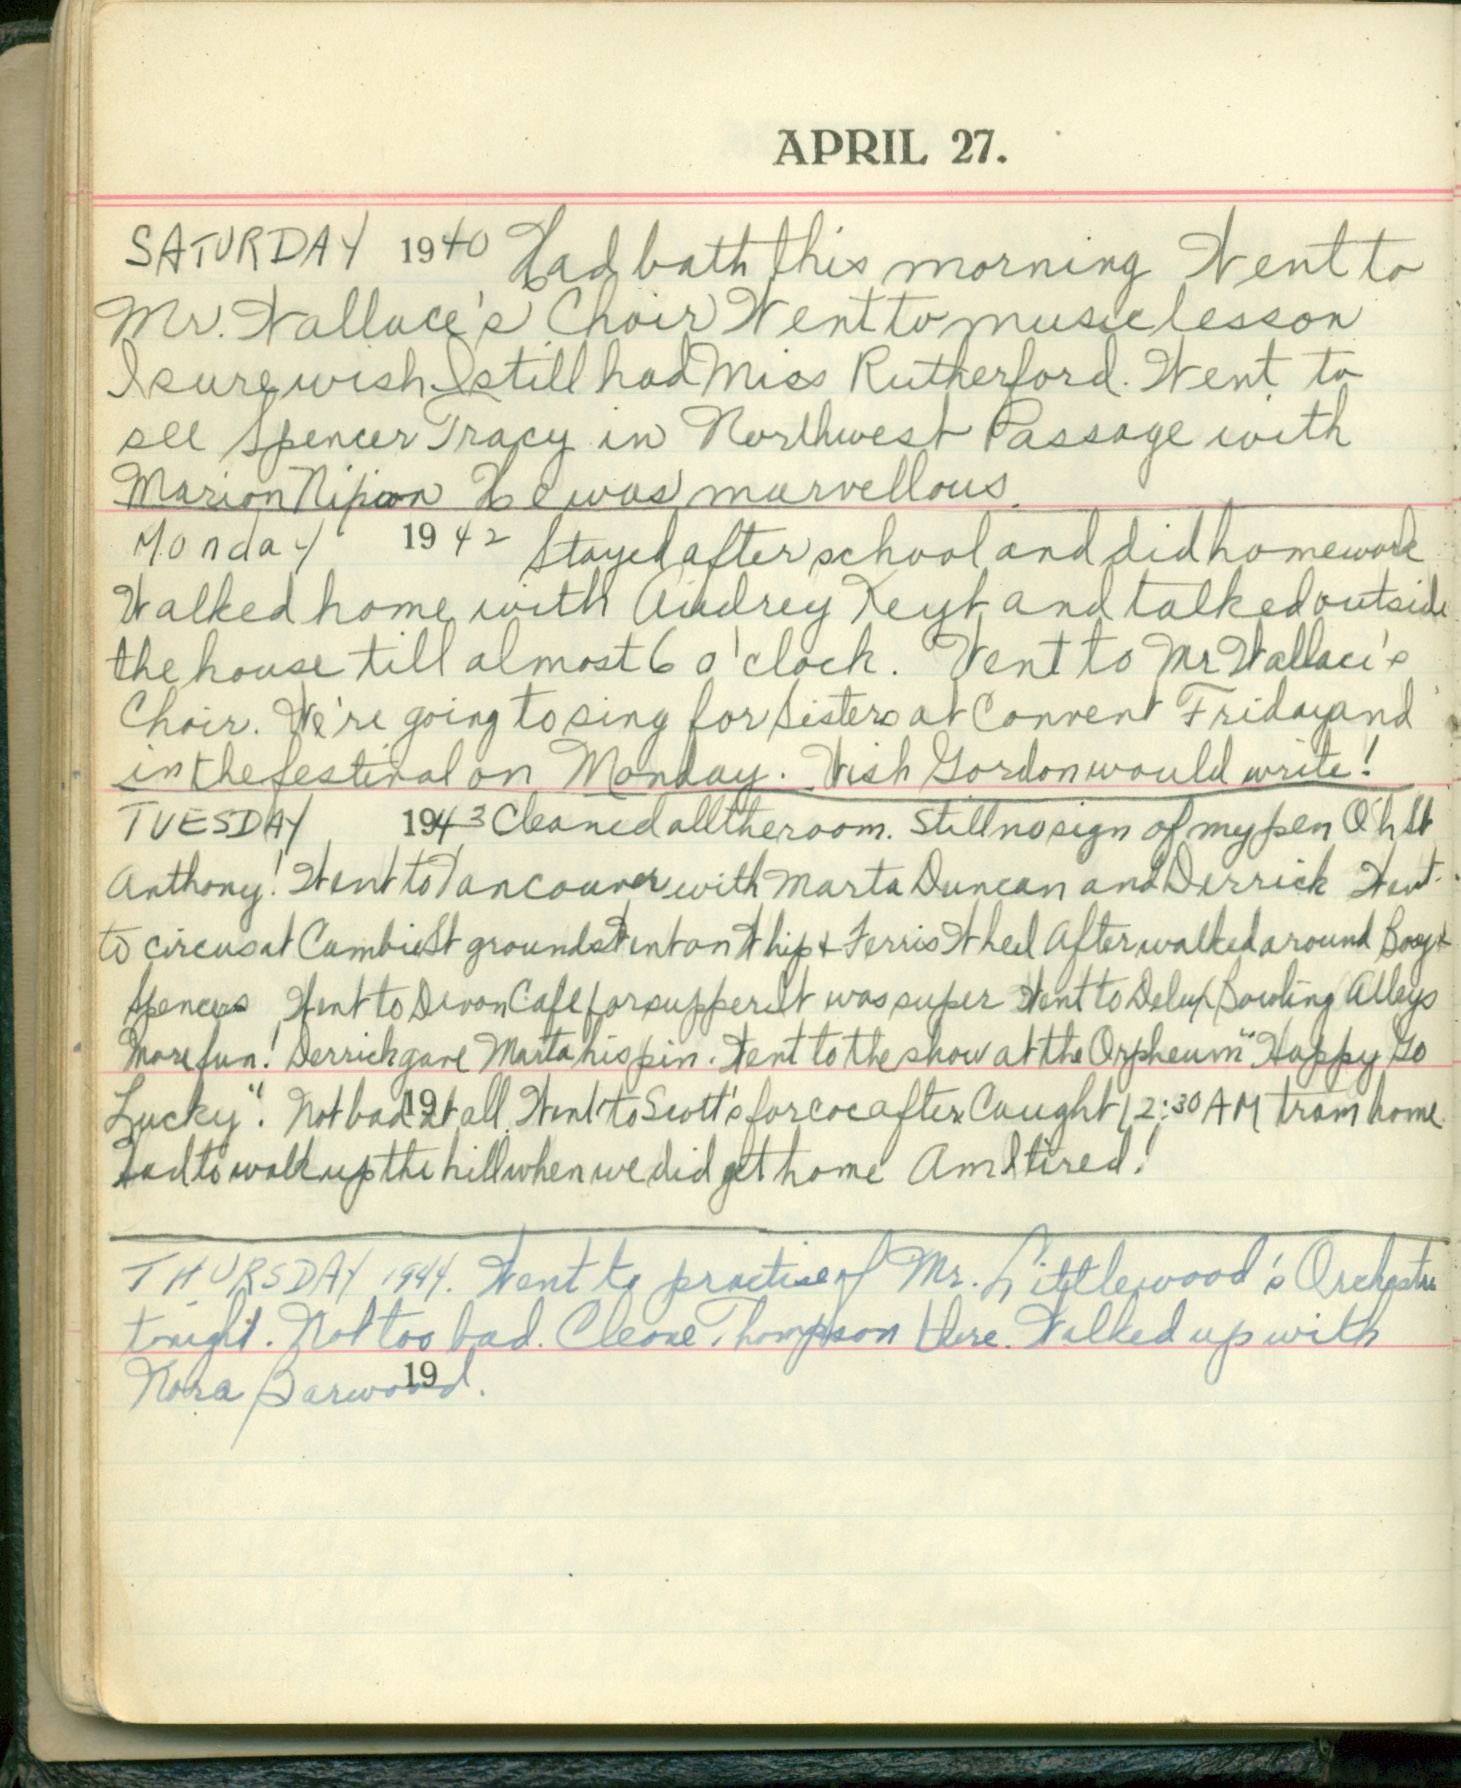 APRIL 27.
SATURDAY 1940 Had bath this morning Went to
Mr. Wallace's Choir Went to music lesson
I sure wish I still had Miss Rutherford. Went to
see Spencer Tracy in Northwest Passage with
Marion He was marvellous.
Monday 1942 Stayed after school and did homework
Walked home with Audrey Keyt and talked outside
the house till almost 6 o'clock. Went to Mr Wallace's
Choir. We're going to sing for Sisters at Convent Friday and
in the festival on Monday. Wish Gordon would write!
TUESDAY 1943 Cleaned all the room. Still no sign of my pen Oh St
Anthony! Went to Vancouver with Marta Duncan and Derrick Went
to circus at Cambie St grounds Went on Whip & Ferris Wheel After walked around Bay &
Spencers Went to Devon Cafe for supper It was super Went to Delux Bowling Alleys
More fun! Derrick gave Marta his pin. Went to the show at the Orpheum "Happy Go
Lucky". Not bad at all. Went to Scott's for coc after. Caught 12:30 AM tram home.
19
Had to walk up the hill when we did get home Am I tired!
THURSDAY 1944. Went to practise of Mr. Littlewood's Orchestra
tonight. Not too bad. Cleone Thompson there. Walked up with
Nora Barwood.
19